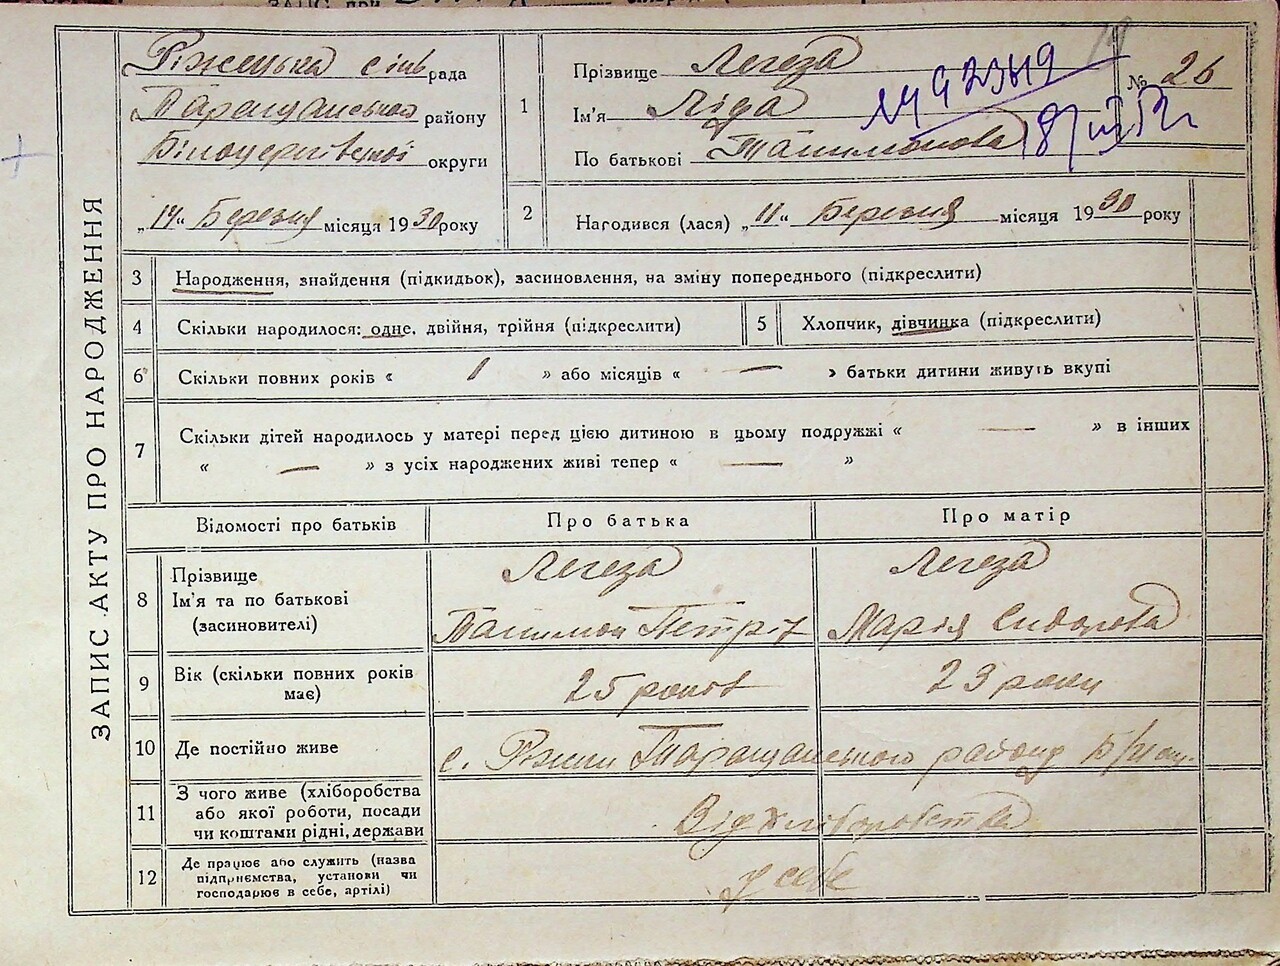 ЗАПИС АКТУ ПРО НАРОДЖЕННЯ
Ріжецька сільрада
Таращанського району
Білоцерківської округи
„14" Березня місяця 1930 року
1
Прізвище Легеза
Ім'я Ліда
По батькові
№ 26
2
Нагодився (лася) „11" Березня місяця 1930 року
3 Народження, знайдення (підкидьок), засиновлення, на зміну попереднього (підкреслити)
4 Скільки народилося: одне, двійня, трійня (підкреслити)
5 Хлопчик, дівчинка (підкреслити)
6 Скільки повних років « 1 » або місяців « — » батьки дитини живуть вкупі
7 Скільки дітей народилось у матері перед цією дитиною в цьому подружжі « — » в інших
« — » з усіх народжених живі тепер « — »
Відомості про батьків
Про батька
Про матір
8 Прізвище
Ім'я та по батькові
(засиновителі)
Легеза
Петрів
Легеза
Марія Сидорова
9 Вік (скільки повних років
має)
25 років
23 роки
10 Де постійно живе
с. Ріжки Таращанського району
11 З чого живе (хліборобства
або якої роботи, посади
чи коштами рідні, держави
Від хліборобства
12 Де працює або служить (назва
підприємства, установи чи
господарює в себе, артілі)
у себе